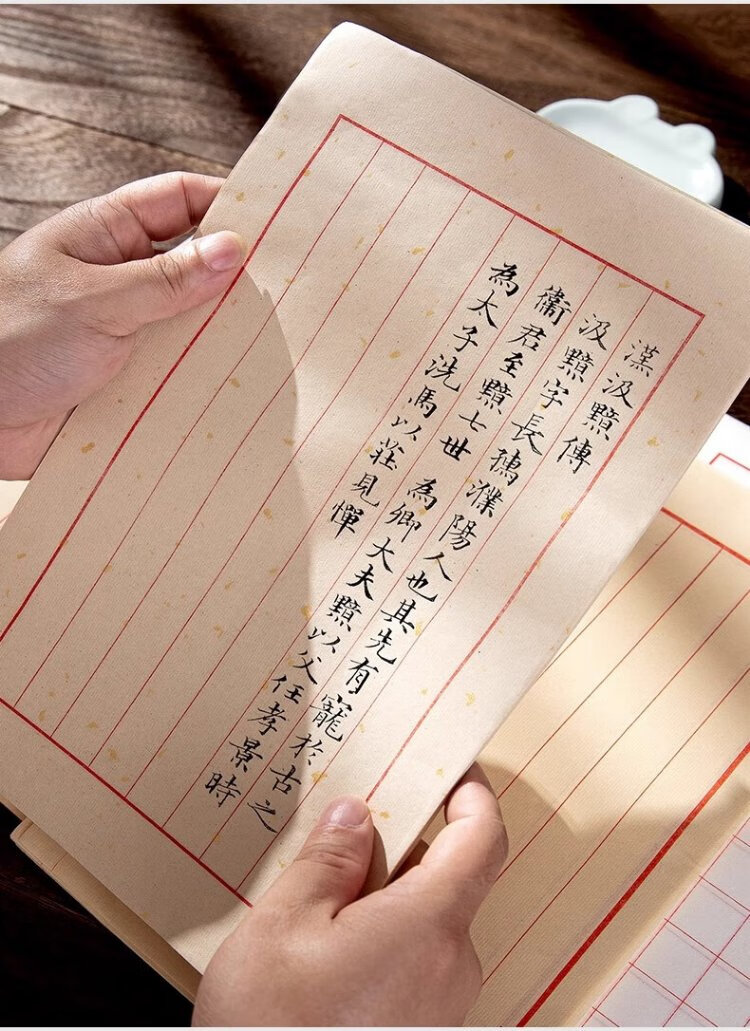 漢汲黯傳
汲黯字長孺濮陽人也其先有寵於古之
衛君至黯七世為卿大夫黯以父任孝景時
為太子洗馬以莊見憚